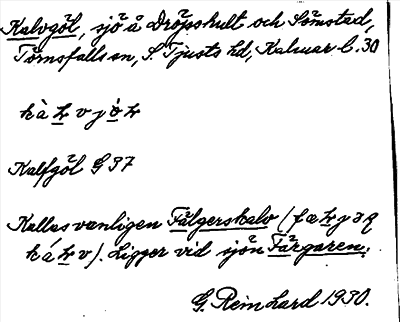 Kalvgöl, sjö å Dröpshult och Sömstad,
Törnsfalls sn, S. Tjusts hd, Kalmar l. 30
Kalfgöl G 37
Kallas vanligen Fålgerskalv (
). Ligger vid sjön Färgaren.
G. Reinhard 1930.